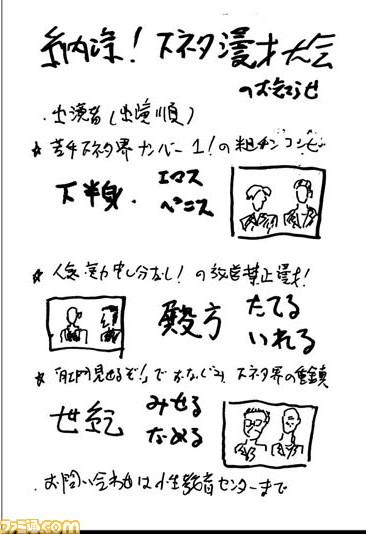 納涼!下ネタ漫才大会
のお知らせ
・出演者(出演順)
★若手下ネタ界ナンバー1!の粗チンコンビ
下半身・エロス
ペニス
★人気実力申し分なし!の放送禁止漫才!
殿方 たてる
いれる
★「肛門見せるぞ!」でおなじみ、下ネタ界の重鎮
世紀 みせる
なめる
・お問い合わせは性教育センターまで
ファミ通.com